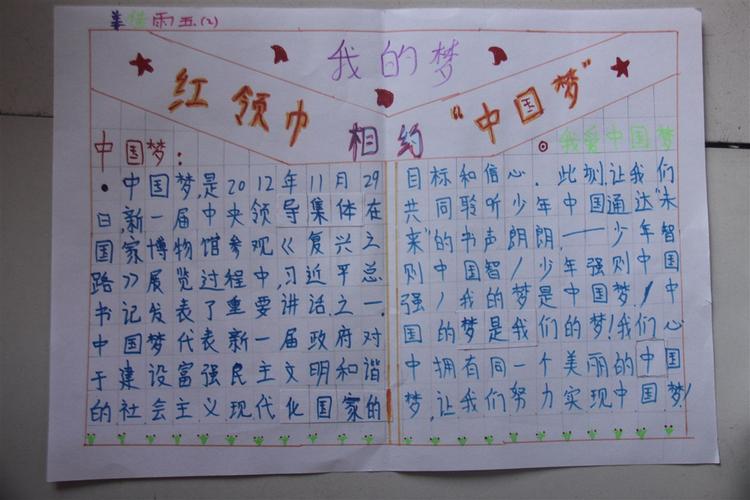 雨五(2)
我的梦
红领巾 相约“中国梦”
中国梦:
•中国梦,是2012年11月29
日,新一届中央领导集体在
国家博物馆参观《复兴之
路》展览过程中,习近平总
书记发表了重要讲话之一.
中国梦代表新一届政府对
于建设富强民主文明和谐
的社会主义现代化国家的
我爱中国梦
目标和信心.此刻让我们
共同聆听少年中国通达“未
来”的书声朗朗,——少年智
则中国智!少年强则中国
强!我的梦是中国梦!中
国的梦是我们的梦!我们心
中拥有同一个美丽的中国
梦,让我们努力实现中国梦!